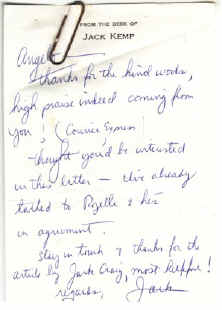 FROM THE DESK OF
JACK KEMP
Angelo —
Thanks for the kind words,
high praise indeed coming from
you! (Courier Express)
- thought you'd be interested
in this letter — I've already
talked to Rozelle & he's
in agreement.
Stay in touch & thanks for the
article by Jack Craig, most helpful!
regards,
Jack